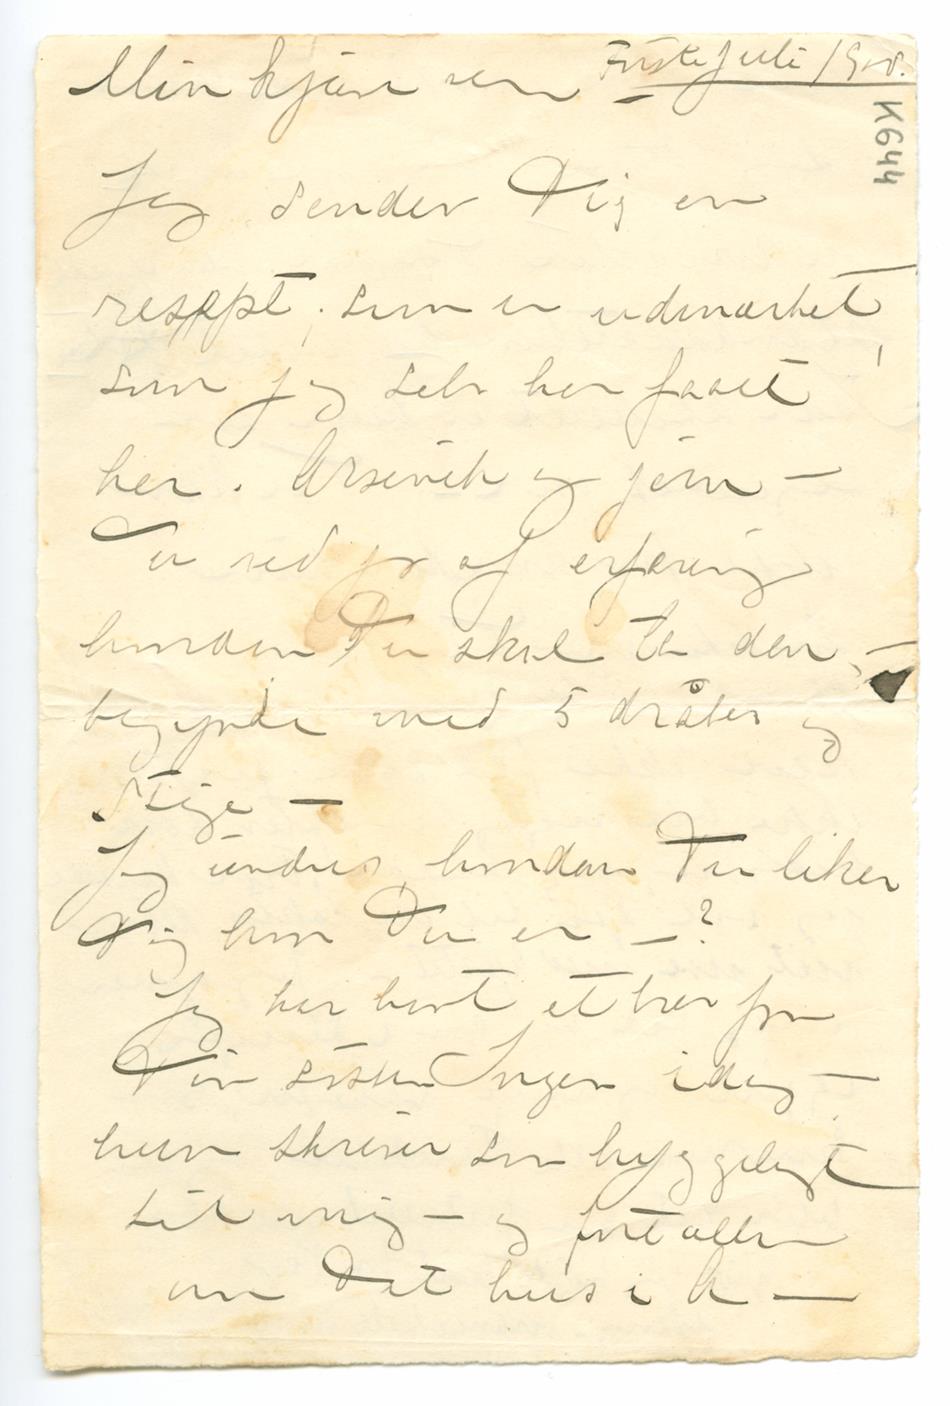 Min kjære ven Første Juli 1908.
K644
Jeg sender Dig en
resept, som er udmærket
som jeg selv har faaet
her. Arsenik og jern —
Du ved jo af erfaring
hvordan Du skal ta den, —
begynde med 5 dråber og
stige —
Jeg undres, hvordan Du liker
Dig hvor Du er — ?
Jeg har havt et brev fra
Din søster Inger idag —
hun skriver saa hyggeligt
til mig — og fortæller
om Dat hus i K —